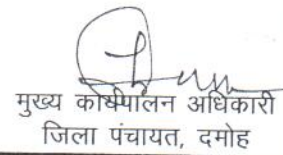 मुख्य कार्यपालन अधिकारी
जिला पंचायत, दमोह